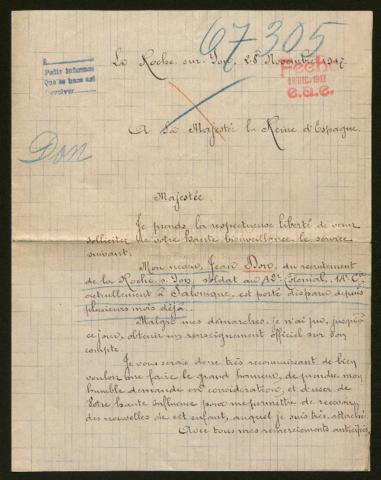 67305
La Roche-sur-Yon, 28 Novembre 1917.
Pedir informes
Que se hace así
Fech
e.a.e.
A Sa Majesté la Reine d'Espagne.
Don
Majestée
Je prends la respectueuse liberté de venir
solliciter de votre haute bienveillance le service
suivant.
Mon neveu, Jean Don, du recrutement
de la Roche s. Yon, soldat au 42e Colonial, 14e Cie,
actuellement à Salonique, est porté disparu depuis
plusieurs mois déjà.
Malgré mes démarches, je n'ai pu, jusqu'à
ce jour, obtenir un renseignement officiel sur son
compte.
Je vous serais donc très reconnaissant de bien
vouloir me faire le grand honneur, de prendre mon
humble demande en considération, et d'user de
Votre haute influence pour me permettre de recevoir
des nouvelles de cet enfant, auquel je suis très attaché.
Avec tous mes remerciements anticipés,